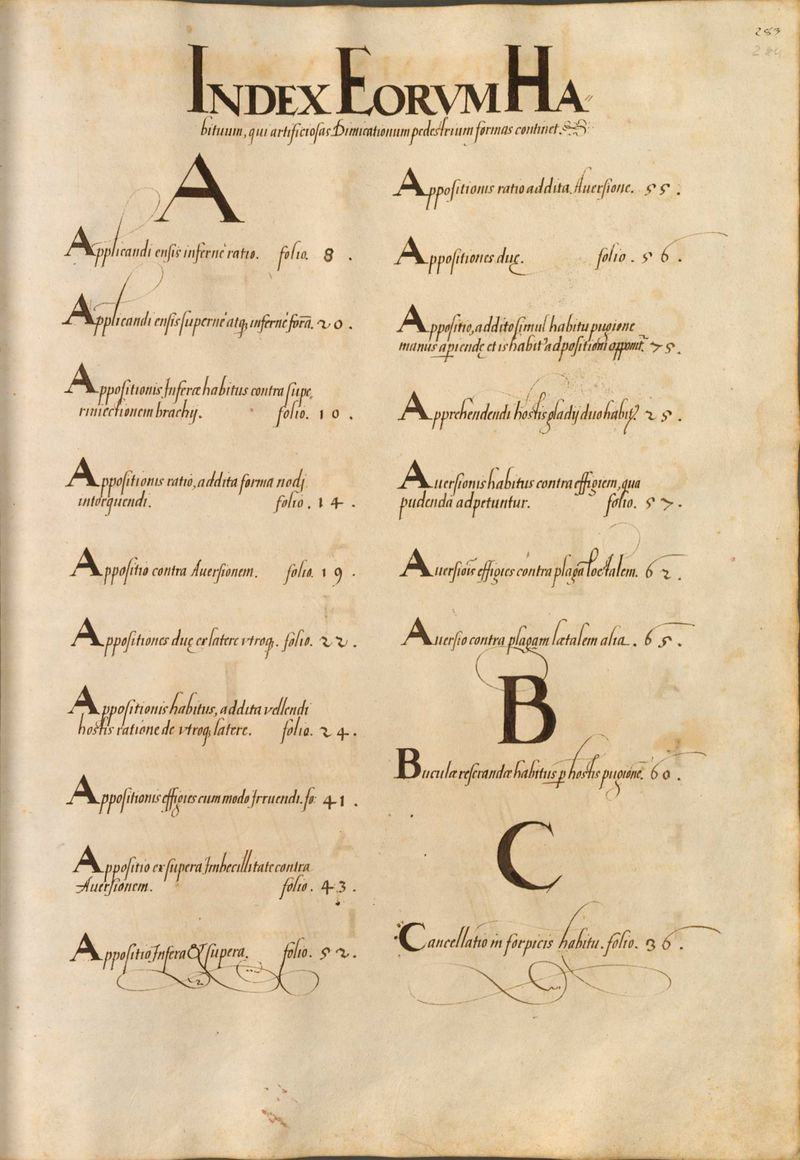 283
284
INDEX EORVM HA⸗
bituum, qui artificiosas Dimicationum pedestrium formas continet.
A
Applicandi ensis infernè ratio. folio. 8.
Applicandi ensis supernè atq; infernè forã. 20.
Appositionis Inferæ habitus contra supe,
riniectionem brachij. folio. 10.
Appositionis ratio, addita forma nodj
intorquendi. folio. 14.
Appositio contra Aversionem. folio. 19.
Appositiones duę ex latere vtroq;. folio. 22.
Appositionis habitus, addita vellendi
hostis ratione de vtroq; latere. folio. 24.
Appositionis effigies cum modo Irruendi. fo: 41.
Appositio ex supera Imbecillitate contra
Auersionem. folio. 43.
Appositio Infera & supera. folio. 52.
Appositionis ratio addita Auersione. 55.
Appositiones duę. folio. 56.
Appositio, addito simul habitu pugione
manus apiende et is habit9 ad positioni 75.
Apprehendendi hostis gladij duo habit9. 25.
Auersionis habitus contra effigiem, qua
pudenda adpetuntur. folio. 57.
Auersiois effigies contra plagã 62.
Auersio contra plagam lætalem alia. 65.
B
Buculæ referandæ habitus p hostis pugionẽ. 60.
C
Cancellatio in forpicis habitu. folio. 36.